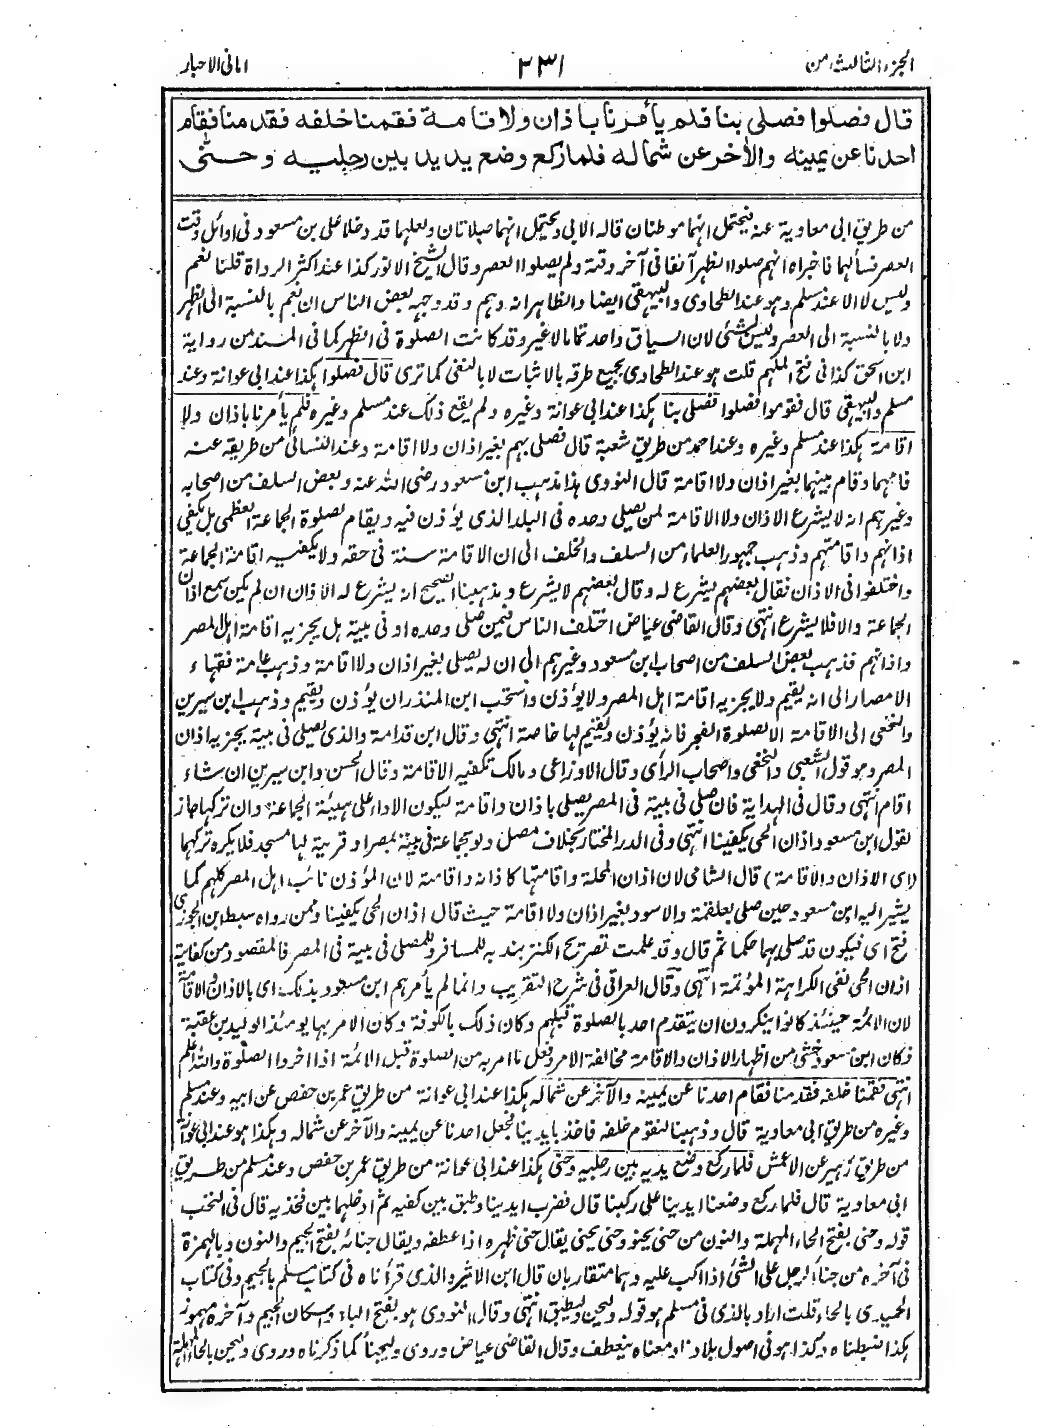 الجزء الثالث من
٢٣١
امانی الاحبار
قال فصلوا فصلى بنا فلم يأمرنا باذان ولا قامة فقمنا خلفه فقد منا فقام
احدنا عن يمينه والأخر عن شماله فلما ركع وضع يديه بين رجليه وحنى
من طريق ابى معاوية عنه فيحتمل انهما موطنان قاله الابى ويحتمل انهما صلاتان ولعلهما قد دخلا على بن مسعود فى اوائل وقت
العصر فسألهما فاخبراه انهم صلوا الظهر آنفا فى آخر وقته ولم يصلوا العصر وقال الشيخ الانور كذا عند اكثر الرواة قلنا نعم
وليس لا الا عند مسلم وهو عند الطحاوى والبيهقى ايضا والظاهر انه وهم وقد وجهه بعض الناس ان نعم بالنسبة الى الظهر
ولا بالنسبة الى العصر وليس بشئ لان السياق واحد تماما لا غير وقد كانت الصلوة فى الظهر كما فى المسند من رواية
ابن اسحق كذا فى فتح الملهم قلت هو عند الطحاوى بجميع طرقه بالاثبات لا بالنفى كما ترى قال فصلوا هكذا عند ابى عوانة وعند
مسلم والبيهقى قال فقوموا فصلوا فصلى بنا هكذا عند ابى عوانة وغيره ولم يقع ذلك عند مسلم وغيره فلم يأمرنا باذان ولا
اقامة هكذا عند مسلم وغيره وعند احمد من طريق شعبة قال فصلى بهم بغير اذان ولا اقامة وعند النسائى من طريقه عنه
فامهما وقام بينهما بغير اذان ولا اقامة قال النووى هذا مذهب ابن مسعود رضى الله عنه وبعض السلف من اصحابه
وغيرهم انه لا يشرع الاذان ولا الاقامة لمن يصلى وحده فى البلد الذى يؤذن فيه ويقام لصلوة الجماعة العظمى بل يكفى
اذانهم واقامتهم وذهب جمهور العلماء من السلف والخلف الى ان الاقامة سنة فى حقه ولا يكفيه اقامة الجماعة
واختلفوا فى الاذان فقال بعضهم يشرع له وقال بعضهم لا يشرع ومذهبنا الصحيح انه يشرع له الاذان ان لم يكن سمع اذان
الجماعة والا فلا يشرع انتهى وقال القاضى عياض اختلف الناس فيمن صلى وحده او فى بيته هل يجزيه اقامة اهل المصر
واذانهم فذهب بعض السلف من اصحاب ابن مسعود وغيرهم الى ان له يصلى بغير اذان ولا اقامة وذهب عامة فقهاء
الامصار الى انه يقيم ولا يجزيه اقامة اهل المصر ولا يؤذن واستحب ابن المنذر ان يؤذن ويقيم وذهب ابن سيرين
والنخعى الى الاقامة الا لصلوة الفجر فانه يؤذن ويقيم لها خاصة انتهى وقال ابن قدامة والذى يصلى فى بيته يجزيه اذان
المصر وهو قول الشعبى والنخعى واصحاب الرأى وقال الاوزاعى ومالك تكفيه الاقامة وقال الحسن وابن سيرين ان شاء
اقام انتهى وقال فى الهداية فان صلى فى بيته فى المصر يصلى باذان واقامة ليكون الاداء على هيئة الجماعة وان تركهما جاز
لقول ابن مسعود اذان الحى يكفينا انتهى وفى الدر المختار بخلاف مصل ولو بجماعة فى بيته بمصر او قرية لها مسجد فلا يكره تركهما
(اى الاذان والاقامة) قال الشامى لان اذان المحلة واقامتها كاذانه واقامته لان المؤذن نائب اهل المصر كلهم كما
يشير اليه ابن مسعود حين صلى بعلقمة والاسود بغير اذان ولا اقامة حيث قال اذان الحى يكفينا وممن رواه سبط ابن الجوزى
فتح اى فيكون قد صلى بهما حكما ثم قال وقد علمت تصريح الكنز بندبه للمسافر وللمصلى فى بيته فى المصر فالمقصود من كفاية
اذان الحى نفى الكراهة المؤثمة انتهى وقال العراقى فى شرح التقريب وانما لم يأمرهم ابن مسعود بذلك اى بالاذان والاقامة
لان الائمة حينئذ كانوا ينكرون ان يتقدم احد بالصلوة قبلهم وكان ذلك بالكوفة وكان الامر بها يومئذ الوليد بن عقبة
فكان ابن مسعود خشى من اظهار الاذان والاقامة مخالفة الامر وفعل ما امر به من الصلوة قبل الائمة اذا اخروا الصلوة والله اعلم
انتهى فقمنا خلفه فقدمنا فقام احدنا عن يمينه والآخر عن شماله هكذا عند ابى عوانة من طريق عمر بن حفص عن ابيه وعند مسلم
وغيره من طريق ابى معاوية قال وذهبنا لنقوم خلفه فاخذ بايدينا فجعل احدنا عن يمينه والآخر عن شماله وهكذا هو عند ابى عوانة
من طريق زهير عن الاعمش فلما ركع وضع يديه بين رجليه وحنى هكذا عند ابى عوانة من طريق عمر بن حفص وعند مسلم من طريق
ابى معاوية قال فلما ركع وضعنا ايدينا على ركبنا قال فضرب ايدينا وطبق بين كفيه ثم ادخلهما بين فخذيه قال فى النخب
قوله وحنى بفتح الحاء المهملة والنون من حنى يحنو وحنى يحنى يقال حنى ظهره اذا عطفه ويقال جنأ بفتح الجيم والنون وبالهمزة
فى آخره من جنأ الرجل على الشئ اذا اكب عليه وهما متقاربان قال ابن الاثير والذى قرأناه فى كتاب مسلم بالجيم وفى كتاب
الحميدى بالحاء قلت اراد بالذى فى مسلم هو قوله وليحن وليطبق انتهى وقال النووى هو بفتح الياء واسكان الجيم وآخره مهموز
هكذا ضبطناه وكذا هو فى اصول بلادنا ومعناه ينعطف وقال القاضى عياض وروى وليجنأ كما ذكرناه وروى وليحن بالحاء المهملة